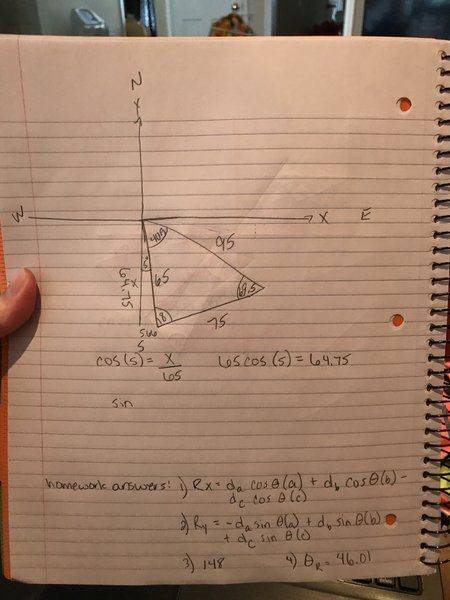 N
Y
W
X
E
95
65
5
X
64.75
69.5
75
S
cos(5) = X/65 65cos(5) = 64.75
sin
homework answers: 1) Rx = da cos θ(a) + db cos θ(b) -
dc cos θ(c)
2) Ry = -da sin θ(a) + db sin θ(b)
+ dc sin θ(c)
3) 148 4) θR = 46.01